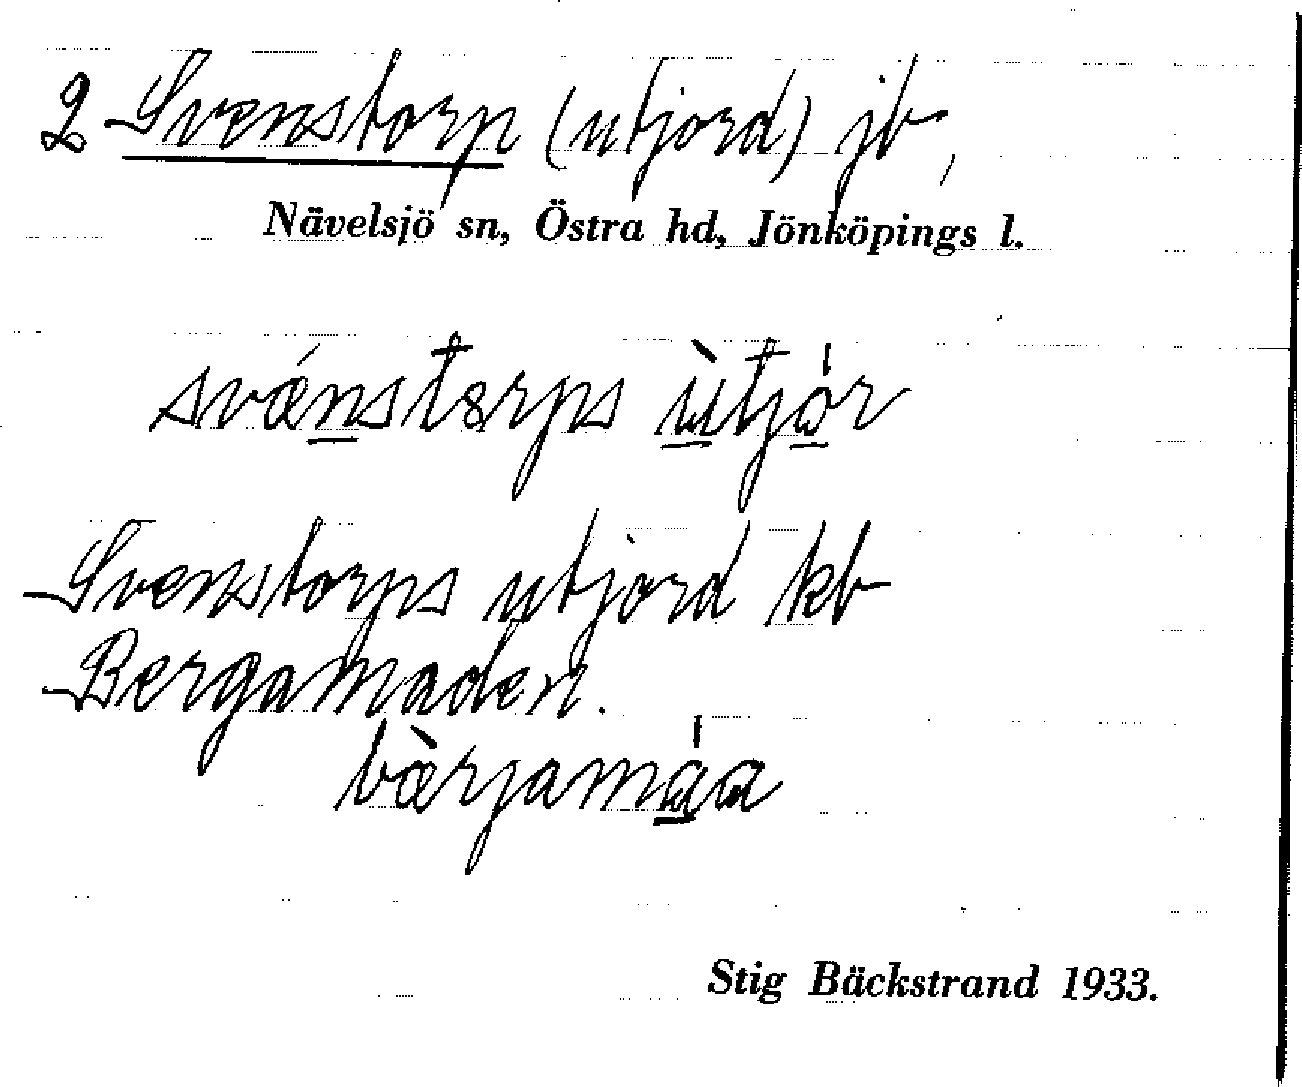 2 Svenstorp (utjord) jb,
Nävelsjö sn, Östra hd, Jönköpings l.
svǽnstorps ùtjȯr
Svenstorps utjord kb
Bergamaden.
bæ̀rjamáa
Stig Bäckstrand 1933.